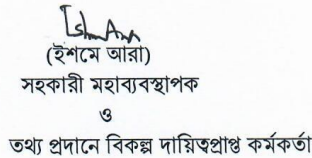 (ইশমে আরা)
সহকারী মহাব্যবস্থাপক
ও
তথ্য প্রদানে বিকল্প দায়িত্বপ্রাপ্ত কর্মকর্তা